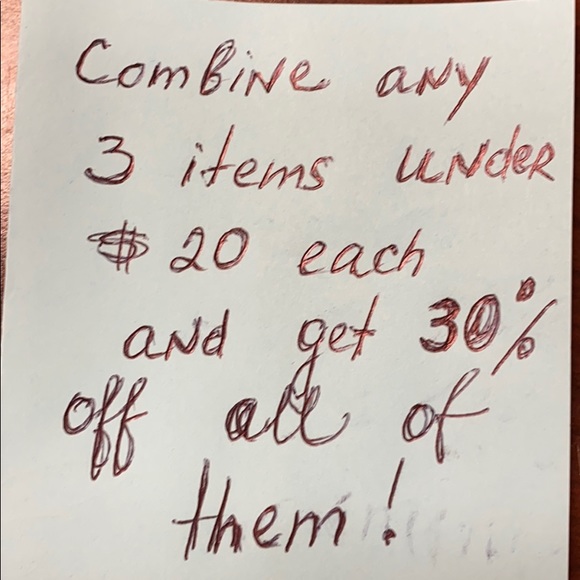 Combine any
3 items under
$20 each
and get 30%
off all of
them!